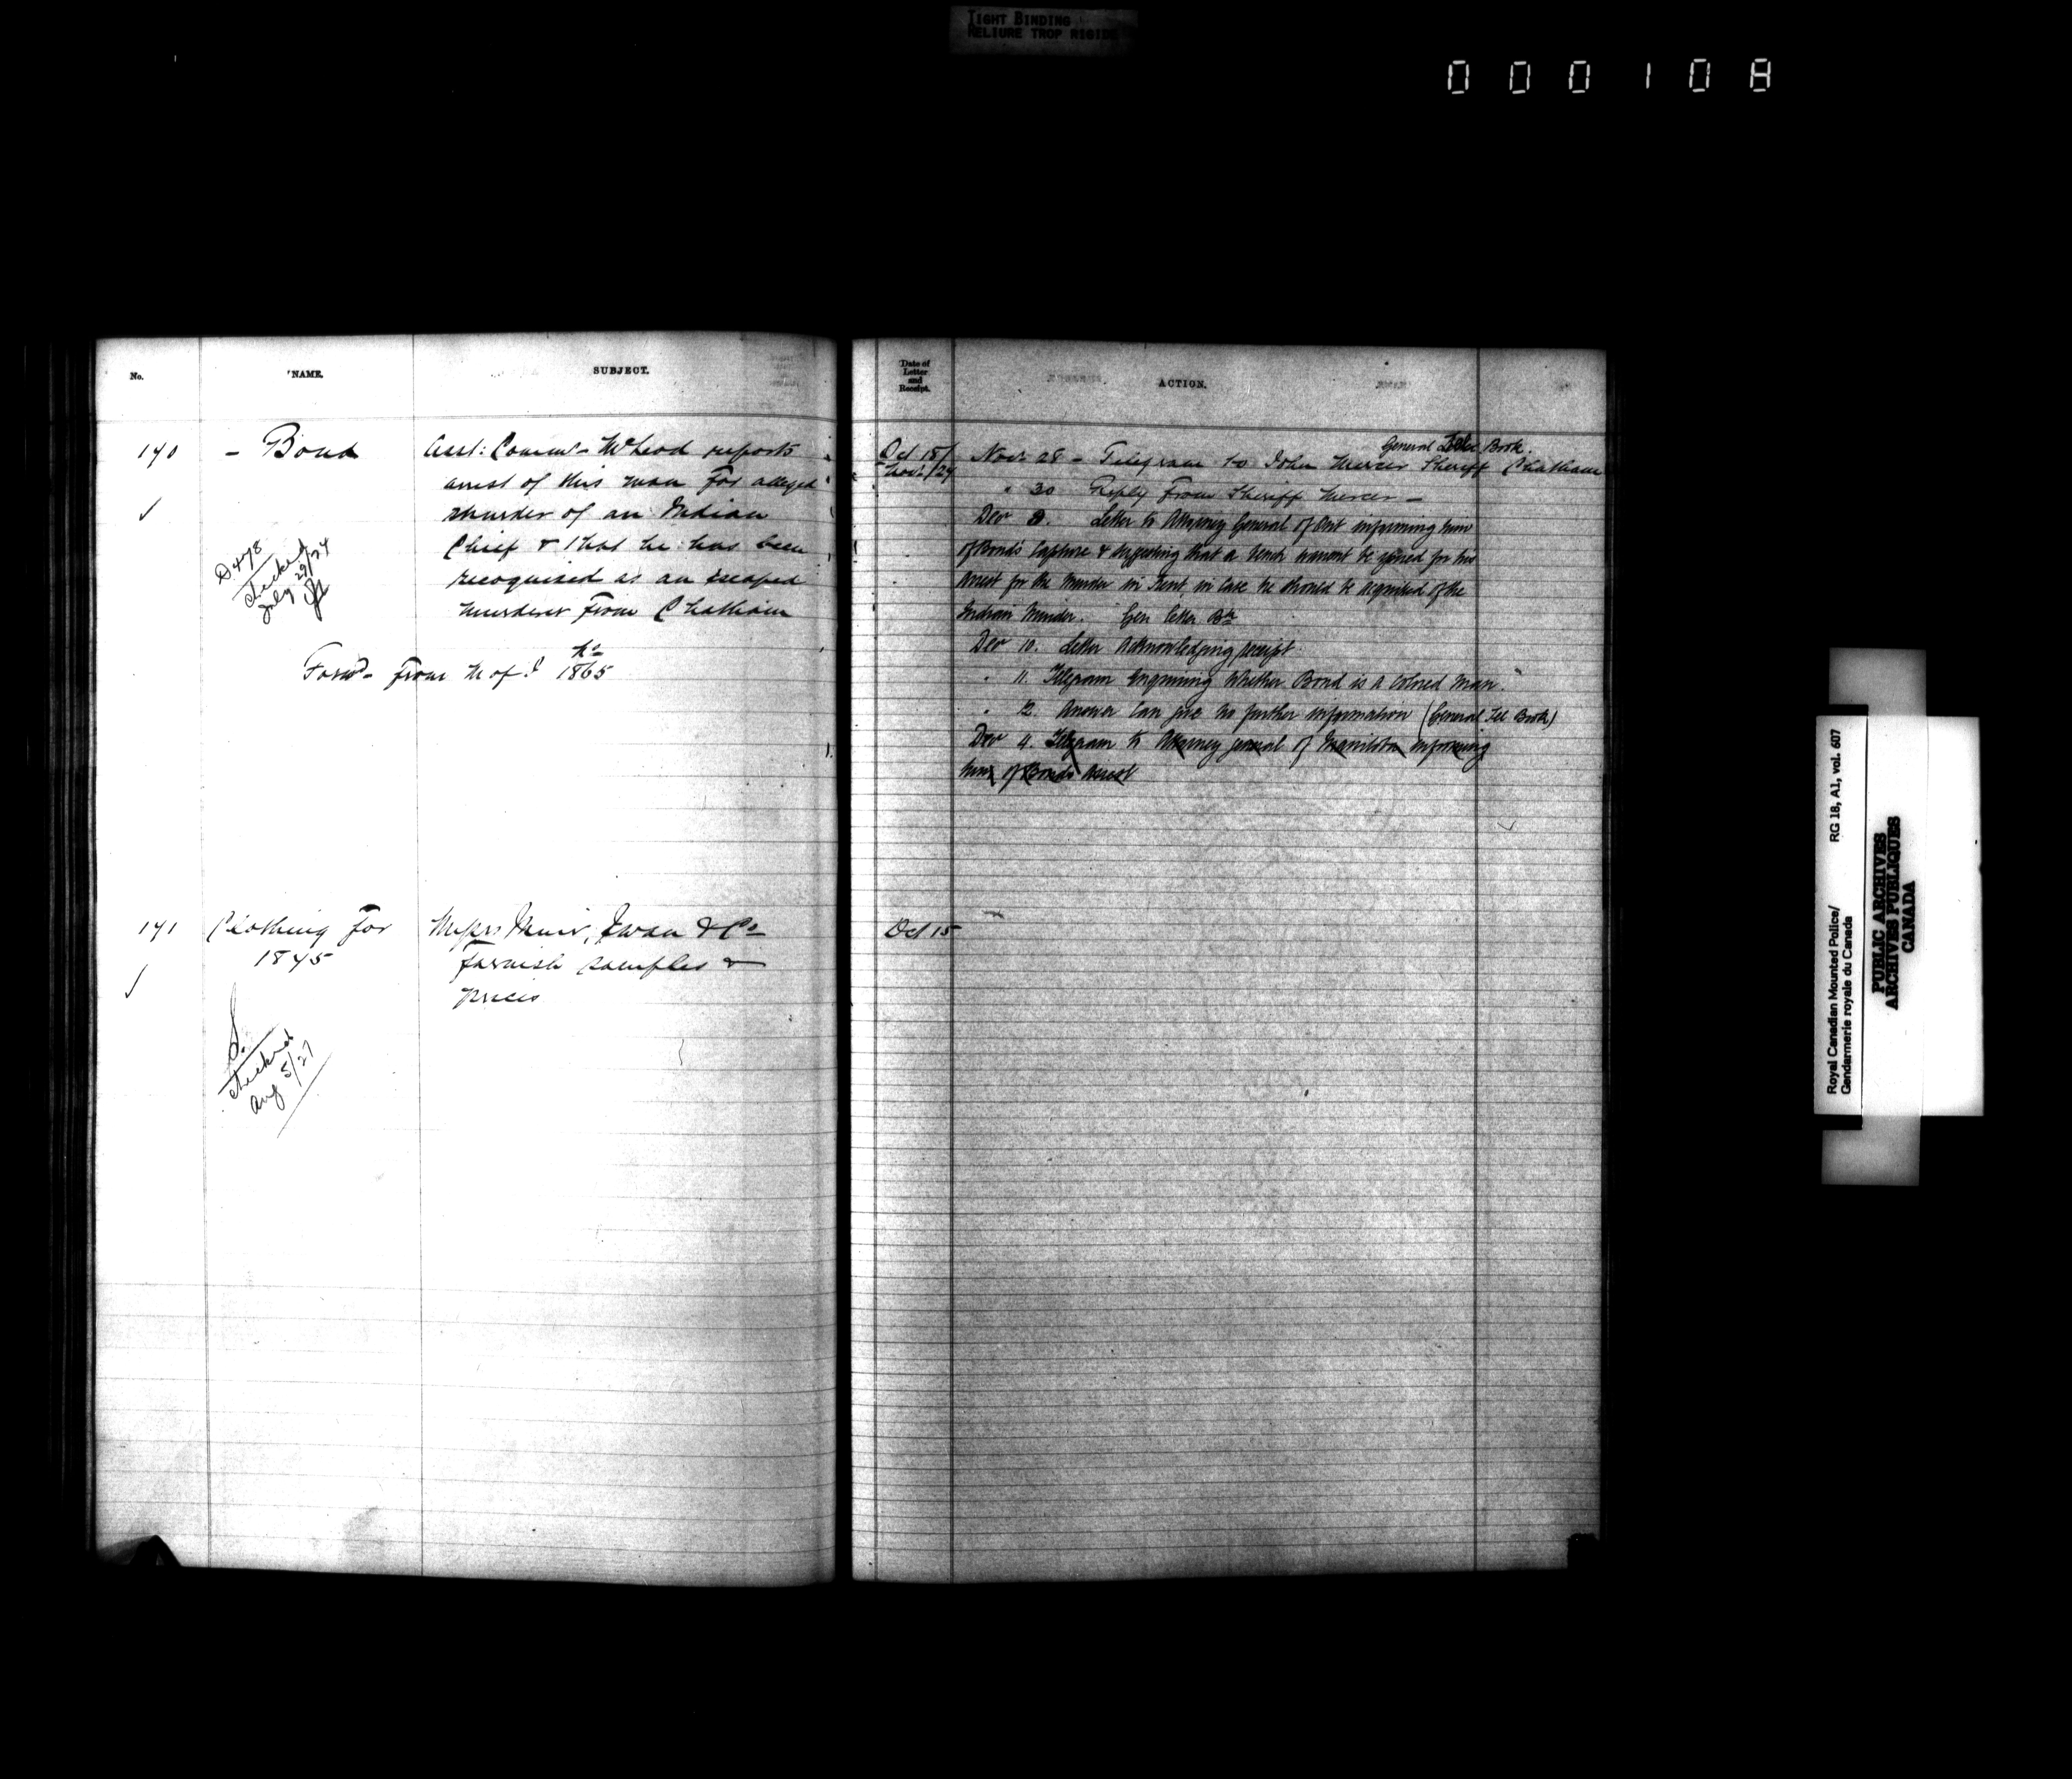 TIGHT BINDING
RELIURE TROP RIGIDE
000108
No.
NAME.
SUBJECT.
140
- Bond
Asst: Commr - McLeod reports
arrest of this man for alleged
murder of an Indian
Chief & that he has been
recognized as an escaped
murderer from Chatham
checked
July 29/24
No
Forwd - from M of J 1865
141
Clothing for
1875
Messrs Muir, Ewan & Co
furnish samples &
prices
S.
checked
Aug 5/27
Date of
Letter
and
Receipt.
ACTION.
Oct 15/
Novr/24
General Letter Book.
Novr 28 - Telegram to John Mercer Sheriff Chatham
" 30 Reply from Sheriff Mercer -
Decr 3. Letter to Attorney General of Ont informing him
of Bond's Capture & suggesting that a bench warrant be issued for his
arrest for the murder in Kent in case he should be acquitted of the
Indian Murder. Gen letter Bk
Decr 10. Letter acknowledging receipt.
" 11. Telegram Enquiring whether Bond is a colored man.
" 12. Answer Can give no further information (General Tel Book)
Decr 4. Telegram to Attorney general of Manitoba informing
him of Bonds arrest
Oct 15
Royal Canadian Mounted Police/
Gendarmerie royale du Canada
RG 18, A1, vol. 607
PUBLIC ARCHIVES
ARCHIVES PUBLIQUES
CANADA